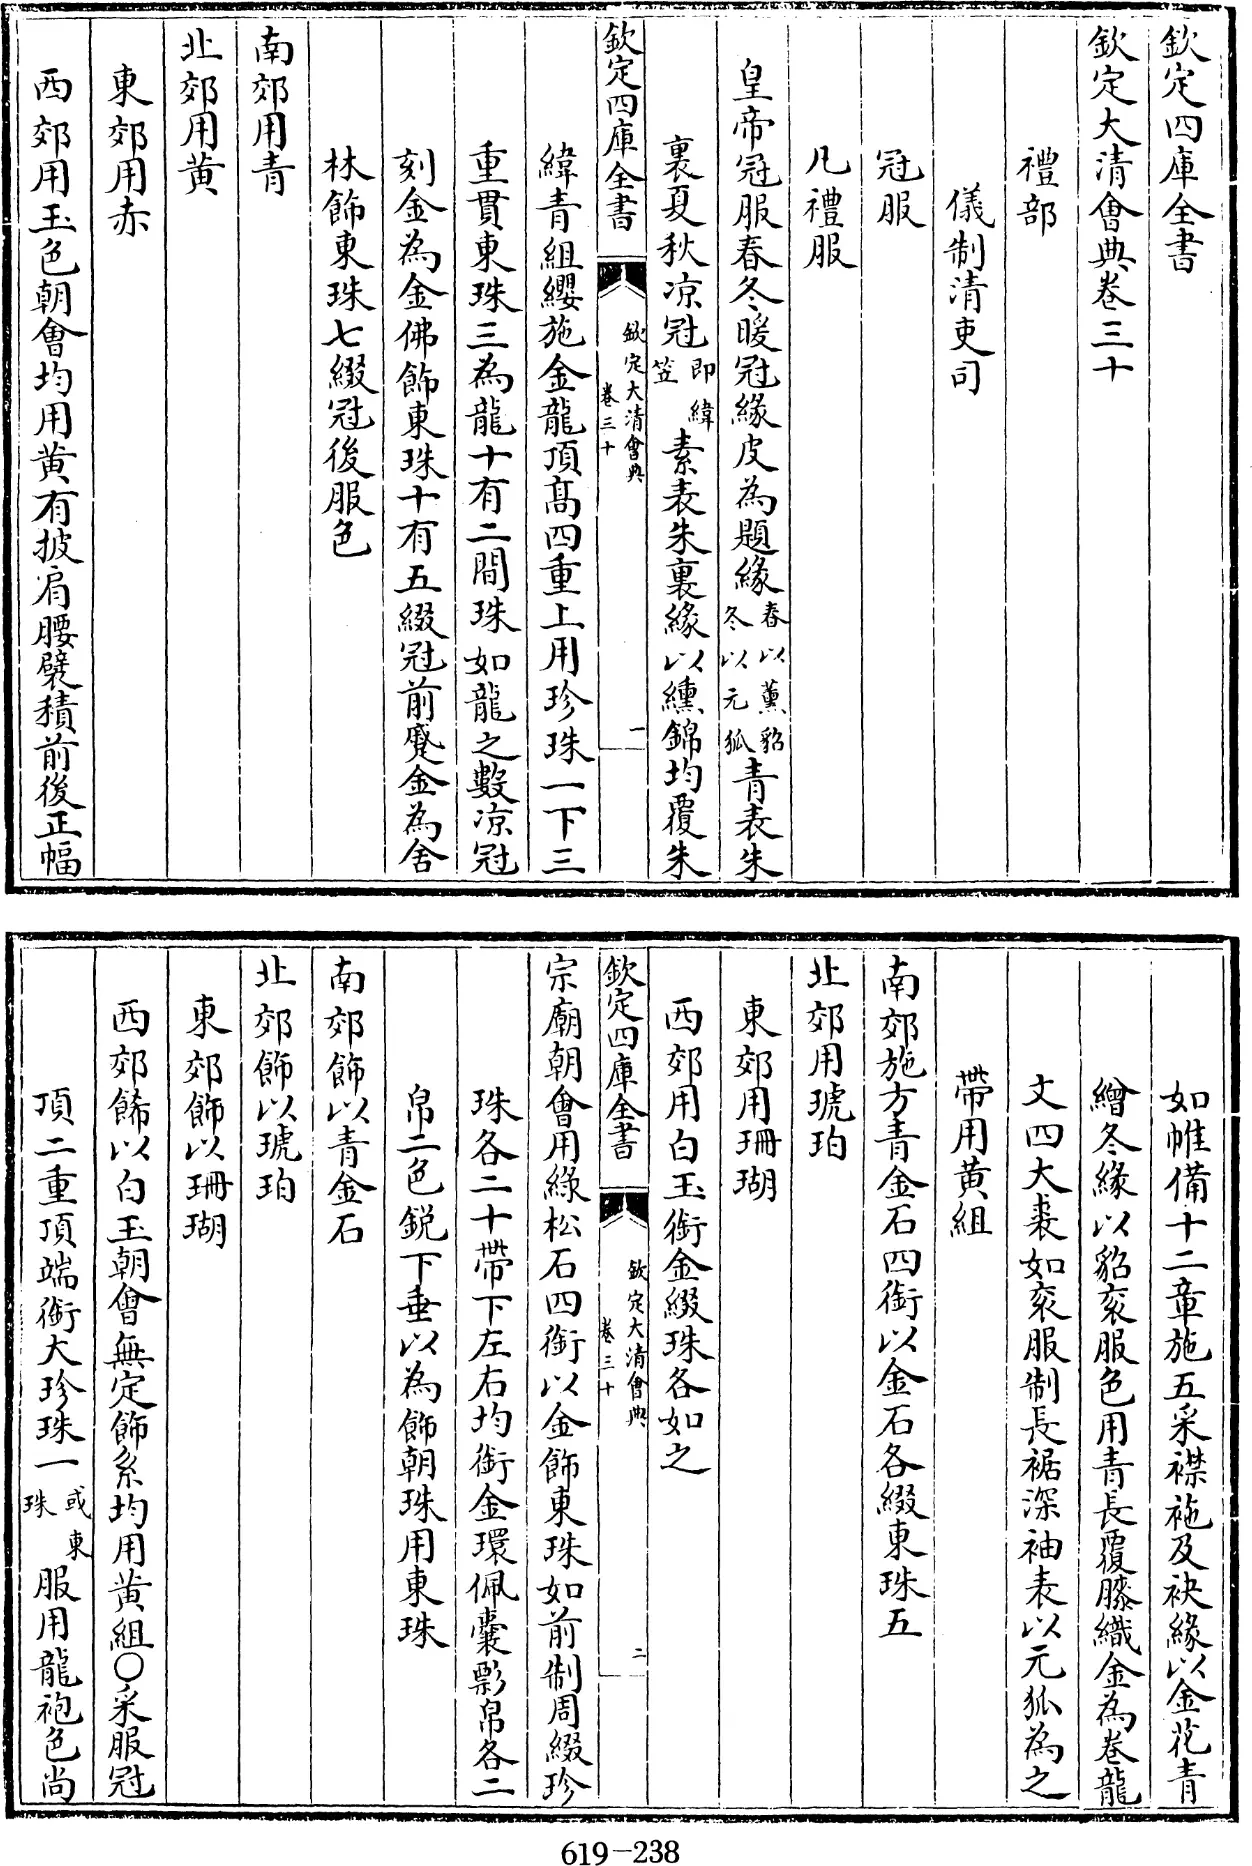 欽定四庫全書
欽定大清會典卷三十
禮部
儀制清吏司
冠服
凡禮服
皇帝冠服春冬暖冠緣皮為題緣春以薰貂冬以元狐青表朱
裏夏秋凉冠即緯笠素表朱裏緣以纁錦均覆朱
欽定四庫全書
欽定大清會典
卷三十
一
緯青組纓施金龍頂高四重上用珍珠一下三
重貫東珠三為龍十有二間珠如龍之數凉冠
刻金為金佛飾東珠十有五綴冠前蹙金為舍
林飾東珠七綴冠後服色
南郊用青
北郊用黄
東郊用赤
西郊用玉色朝會均用黄有披肩腰襞積前後正幅
如帷備十二章施五采襟䄂及袂緣以金花青
繒冬緣以貂衮服色用青長覆膝織金為卷龍
文四大裘如衮服制長裾深袖表以元狐為之
帶用黄組
南郊施方青金石四銜以金石各綴東珠五
北郊用琥珀
東郊用珊瑚
西郊用白玉銜金綴珠各如之
欽定四庫全書
欽定大清會典
卷三十
二
宗廟朝會用綠松石四銜以金飾東珠如前制周綴珍
珠各二十帶下左右均銜金環佩囊彯帛各二
帛二色銳下垂以為飾朝珠用東珠
南郊飾以青金石
北郊飾以琥珀
東郊飾以珊瑚
西郊飾以白玉朝會無定飾糸均用黄組○采服冠
頂二重頂端銜大珍珠一或東珠服用龍袍色尚
619-238